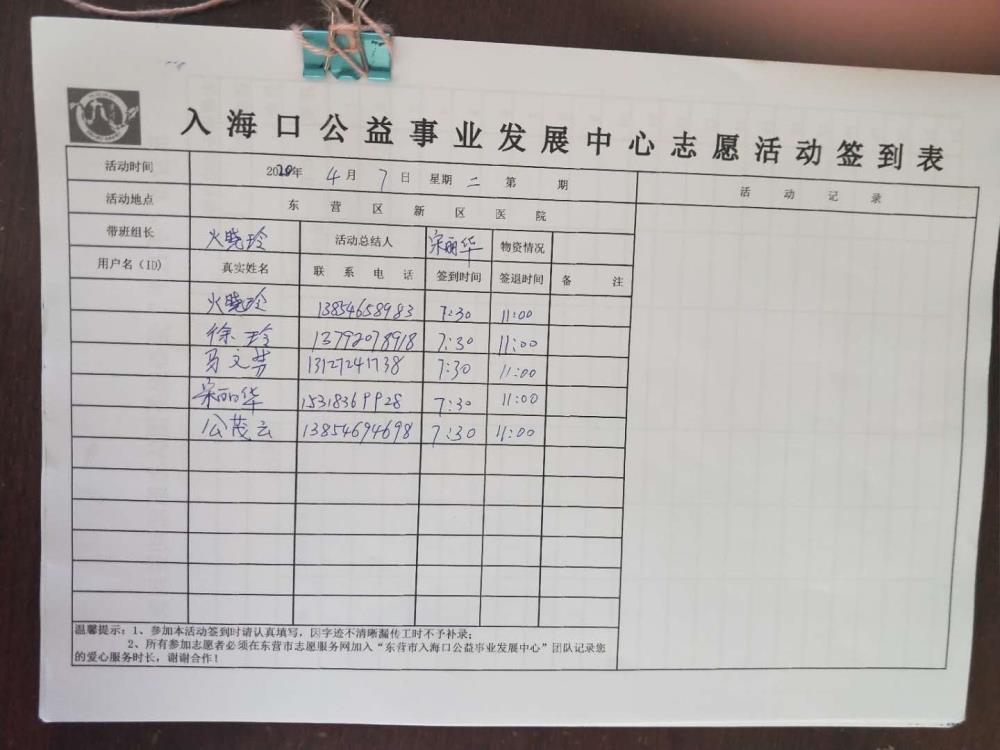 入海口公益事业发展中心志愿活动签到表
活动时间 2020年 4月 7日 星期二 第 期 活动记录
活动地点 东营区新区医院
带班组长 火晓玲 活动总结人 宋丽华 物资情况
用户名（ID） 真实姓名 联系电话 签到时间 签退时间 备注
火晓玲 13854658983 7:30 11:00
徐玲 13792078918 7:30 11:00
马文梦 13127241738 7:30 11:00
宋丽华 15318369928 7:30 11:00
公茂云 13854694698 7:30 11:00
温馨提示：1、参加本活动签到时请认真填写，因字迹不清晰漏传工时不予补录；
2、所有参加志愿者必须在东营市志愿服务网加入“东营市入海口公益事业发展中心”团队记录您
的爱心服务时长，谢谢合作！